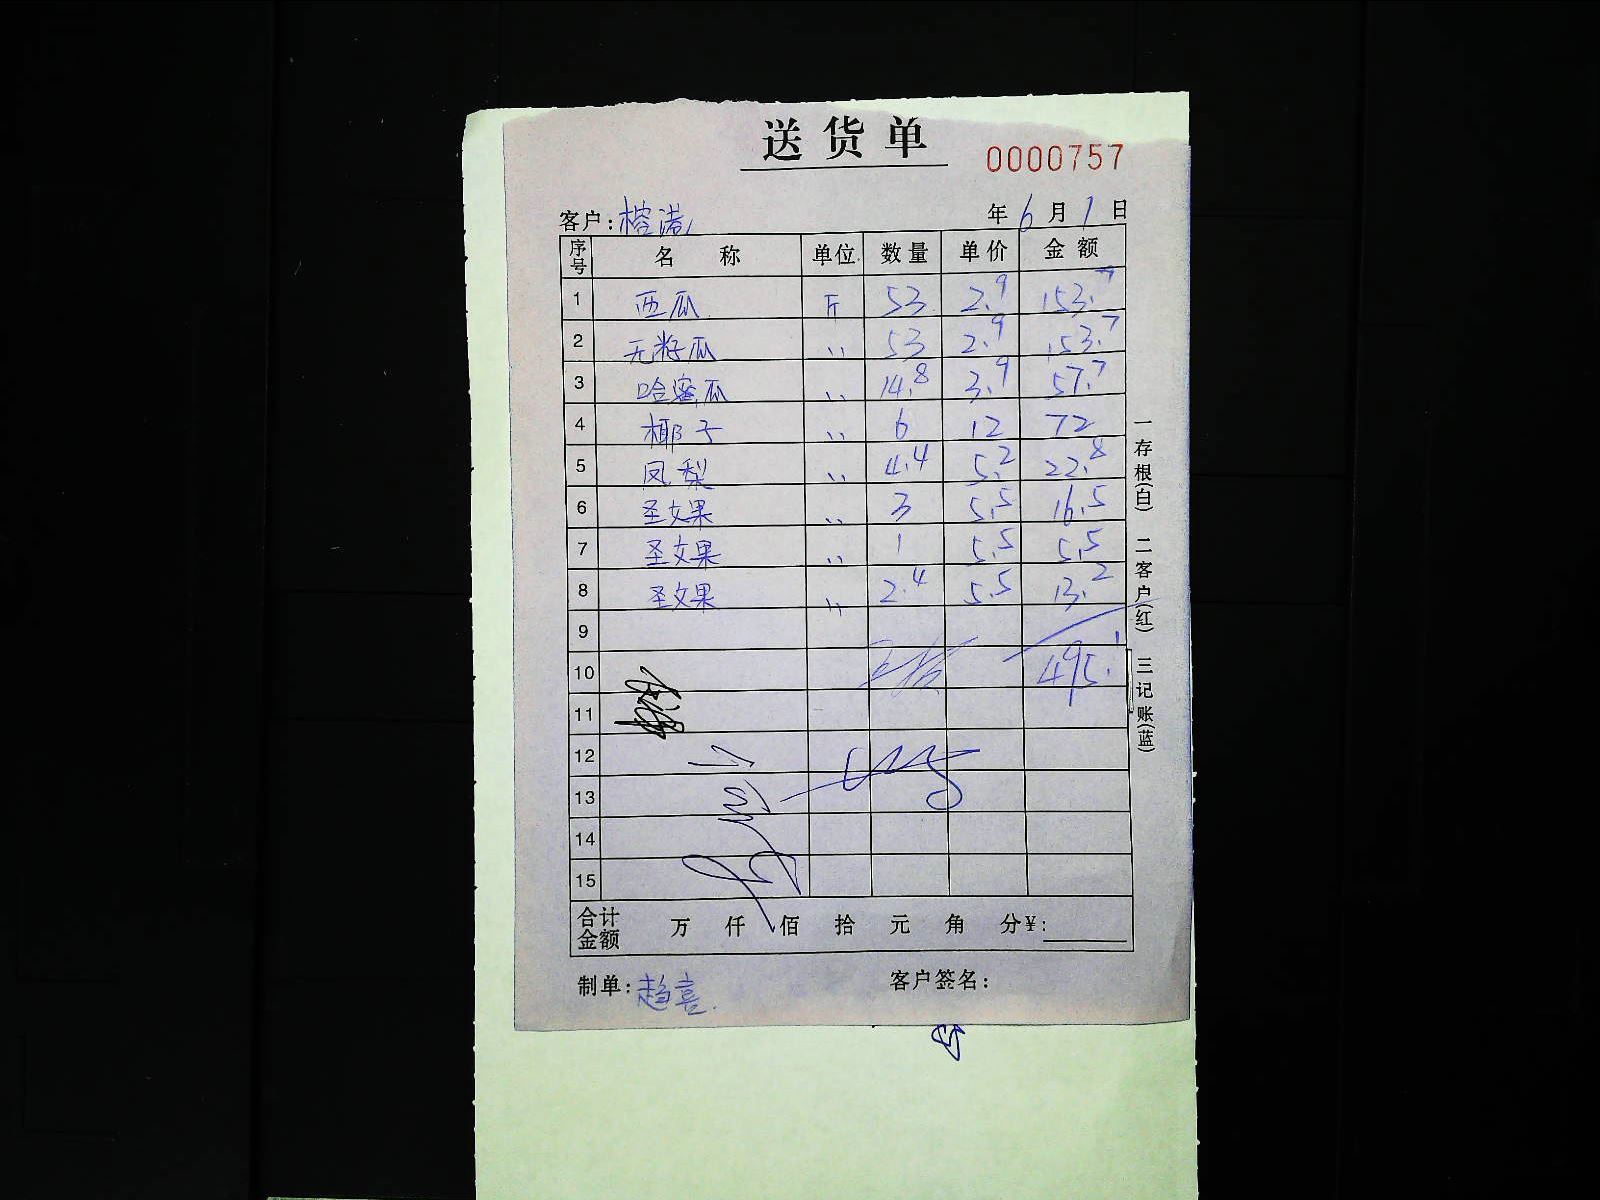 送货单
0000757
客户: 榕港 年6月1日
序号 名称 单位 数量 单价 金额
1 西瓜 斤 53 2.9 153.7
2 无籽瓜 〃 53 2.9 153.7
3 哈蜜瓜 〃 14.8 3.9 57.7
4 椰子 〃 6 12 72
5 凤梨 〃 4.4 5.2 22.8
6 圣女果 〃 3 5.5 16.5
7 圣女果 〃 1 5.5 5.5
8 圣女果 〃 2.4 5.5 13.2
9
10 495.1
11
12
13
14
15
合计金额 万 仟 佰 拾 元 角 分¥:
制单: 趙喜 客户签名:
一存根(白) 二客户(红) 三记账(蓝)